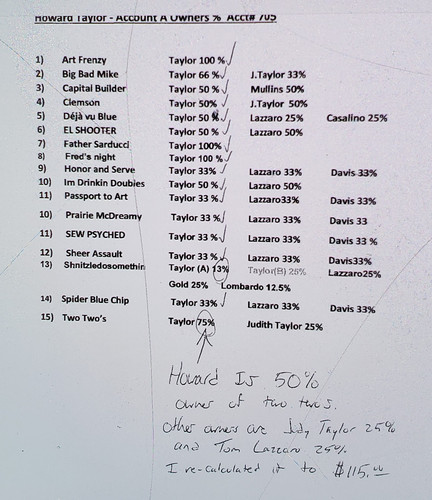 Howard Taylor - Account A Owners % Acct# 705
1) Art Frenzy Taylor 100 %
2) Big Bad Mike Taylor 66 % J.Taylor 33%
3) Capital Builder Taylor 50 % Mullins 50%
4) Clemson Taylor 50% J.Taylor 50%
5) Déjà vu Blue Taylor 50 % Lazzaro 25% Casalino 25%
6) EL SHOOTER Taylor 50 % Lazzaro 50%
7) Father Sarducci Taylor 100%
8) Fred's night Taylor 100 %
9) Honor and Serve Taylor 33% Lazzaro 33% Davis 33%
10) Im Drinkin Doubies Taylor 50 % Lazzaro 50%
11) Passport to Art Taylor 33 % Lazzaro33% Davis 33%
10) Prairie McDreamy Taylor 33 % Lazzaro 33% Davis 33
11) SEW PSYCHED Taylor 33 % Lazzaro 33% Davis 33 %
12) Sheer Assault Taylor 33 % Lazzaro 33% Davis33%
13) Shnitzledosomethin Taylor (A) 13% Taylor(B) 25% Lazzaro25%
Gold 25% Lombardo 12.5%
14) Spider Blue Chip Taylor 33% Lazzaro 33% Davis 33%
15) Two Two's Taylor 75% Judith Taylor 25%
Howard Is 50%
owner of two twos.
Other owners are Judy Taylor 25%
and Tom Lazzaro 25%
I re-calculated it to $115.00